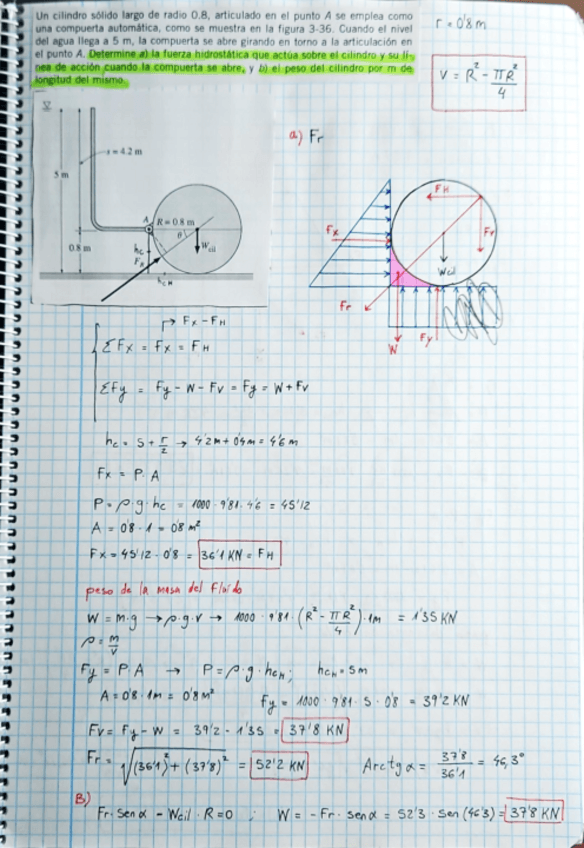 Un cilindro sólido largo de radio 0.8, articulado en el punto A se emplea como
una compuerta automática, como se muestra en la figura 3-36. Cuando el nivel
del agua llega a 5 m, la compuerta se abre girando en torno a la articulación en
el punto A. Determine a) la fuerza hidrostática que actúa sobre el cilindro y su lí-
nea de acción cuando la compuerta se abre, y b) el peso del cilindro por m de
longitud del mismo.
r = 0'8 m
V = R² - πR²/4
a) Fr
s = 4.2 m
5 m
A
R = 0.8 m
θ
0.8 m
hc
FR
Wcil
hcH
FH
Fx
Fr
Wcil
Fr
W
Fy
→ Fx - FH
ΣFx = Fx = FH
ΣFy = Fy - W - Fv = Fy = W + Fv
hc = S + r/2 → 4'2m + 0'4m = 4'6 m
Fx = P · A
P = ρ · g · hc = 1000 · 9'81 · 4'6 = 45'12
A = 0'8 · 1 = 0'8 m²
Fx = 45'12 · 0'8 = 36'1 KN = FH
peso de la masa del fluido
W = m·g → ρ·g·v → 1000 · 9'81 · (R² - πR²/4) · 1m = 1'35 KN
ρ = m/v
Fy = P · A → P = ρ · g · hcH ; hcH = 5m
A = 0'8 · 1m = 0'8 m²
Fy = 1000 · 9'81 · 5 · 0'8 = 39'2 KN
Fv = Fy - W = 39'2 - 1'35 = 37'8 KN
Fr = √(36'1)² + (37'8)² = 52'2 KN
Arctg α = 37'8/36'1 = 46,3°
B)
Fr · sen α - Wcil · R = 0 ; W = - Fr · sen α = 52'3 · sen (46'3) = 37'8 KN